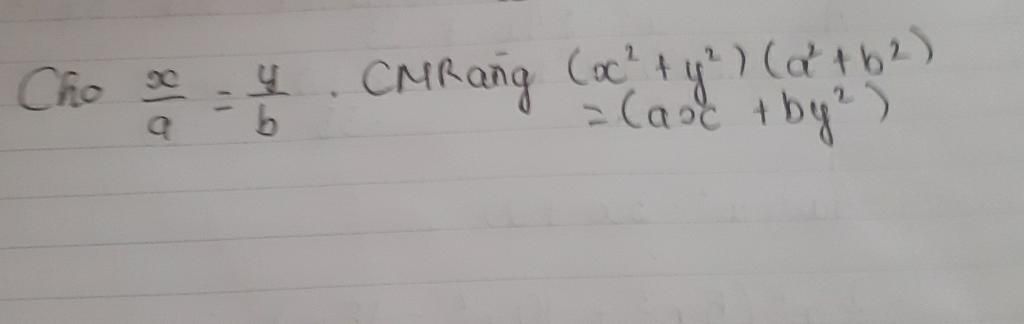 Cho x/a = y/b . CMRằng (x² + y²)(a² + b²)
= (ax + by²)